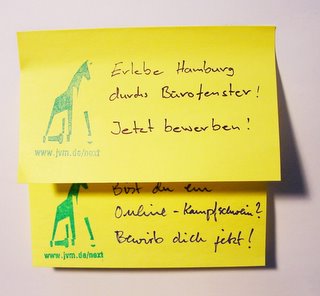 Erlebe Hamburg
durchs Bürofenster!
Jetzt bewerben!
www.jvm.de/next
Bist du ein
Online-Kampfschwein?
Bewirb dich jetzt!
www.jvm.de/next